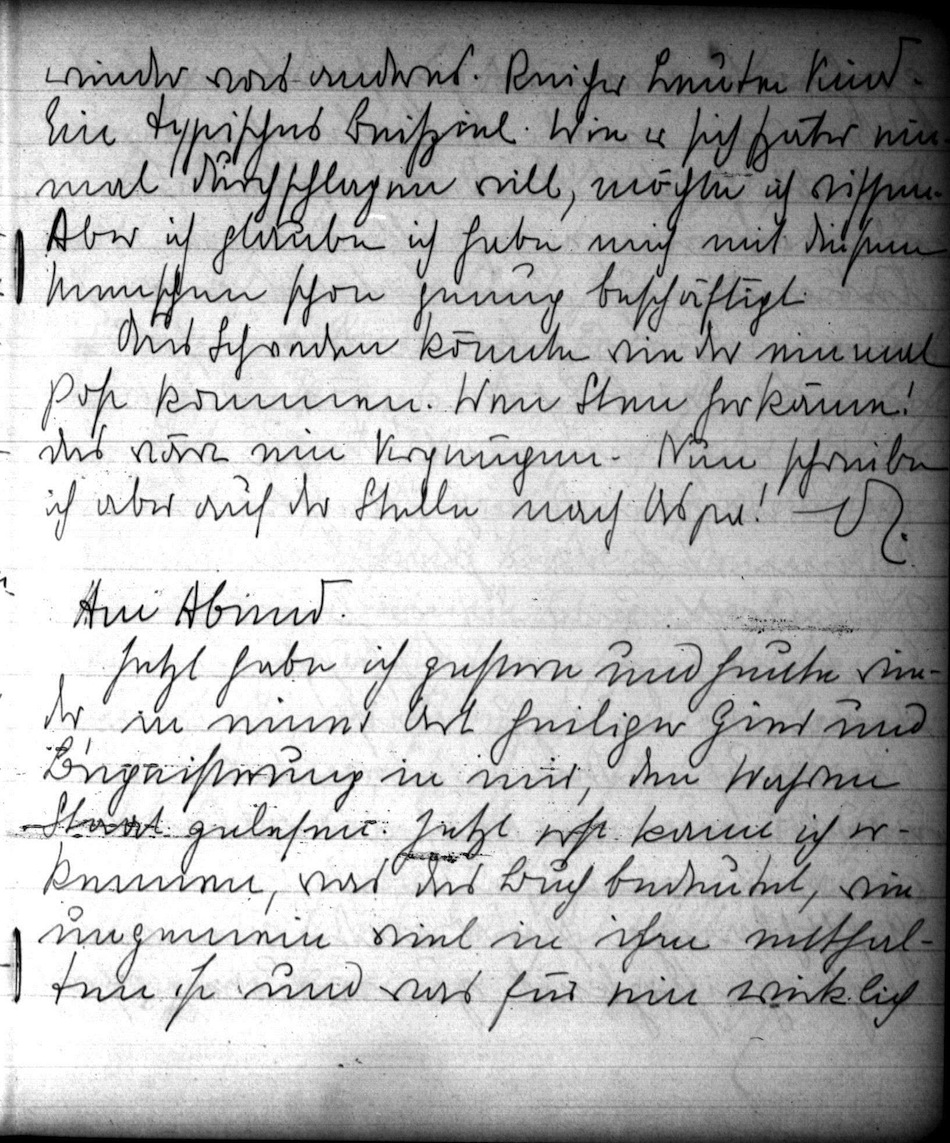 wieder was anderes. Reicher Leute Kind.
Ein typisches Beispiel. Wie er sich später ein-
mal durchschlagen will, möchte ich wissen.
Aber ich glaube ich habe mich mit diesem
Menschen schon genug beschäftigt.
Aus Schweden könnte wieder einmal
Post kommen. Wenn Sten herkäme!
das wäre ein Vergnügen. Nun schreibe
ich aber auf der Stelle nach Aspa!
Am Abend.
Jetzt habe ich gestern und heute wie-
der in einer Art heiliger Gier und
Begeisterung in mir, den Wahren
Staat gelesen. Jetzt erst kann ich er-
kennen, was das Buch bedeutet, wie
ungemein viel in ihm enthal-
ten ist und was für ein wirklich